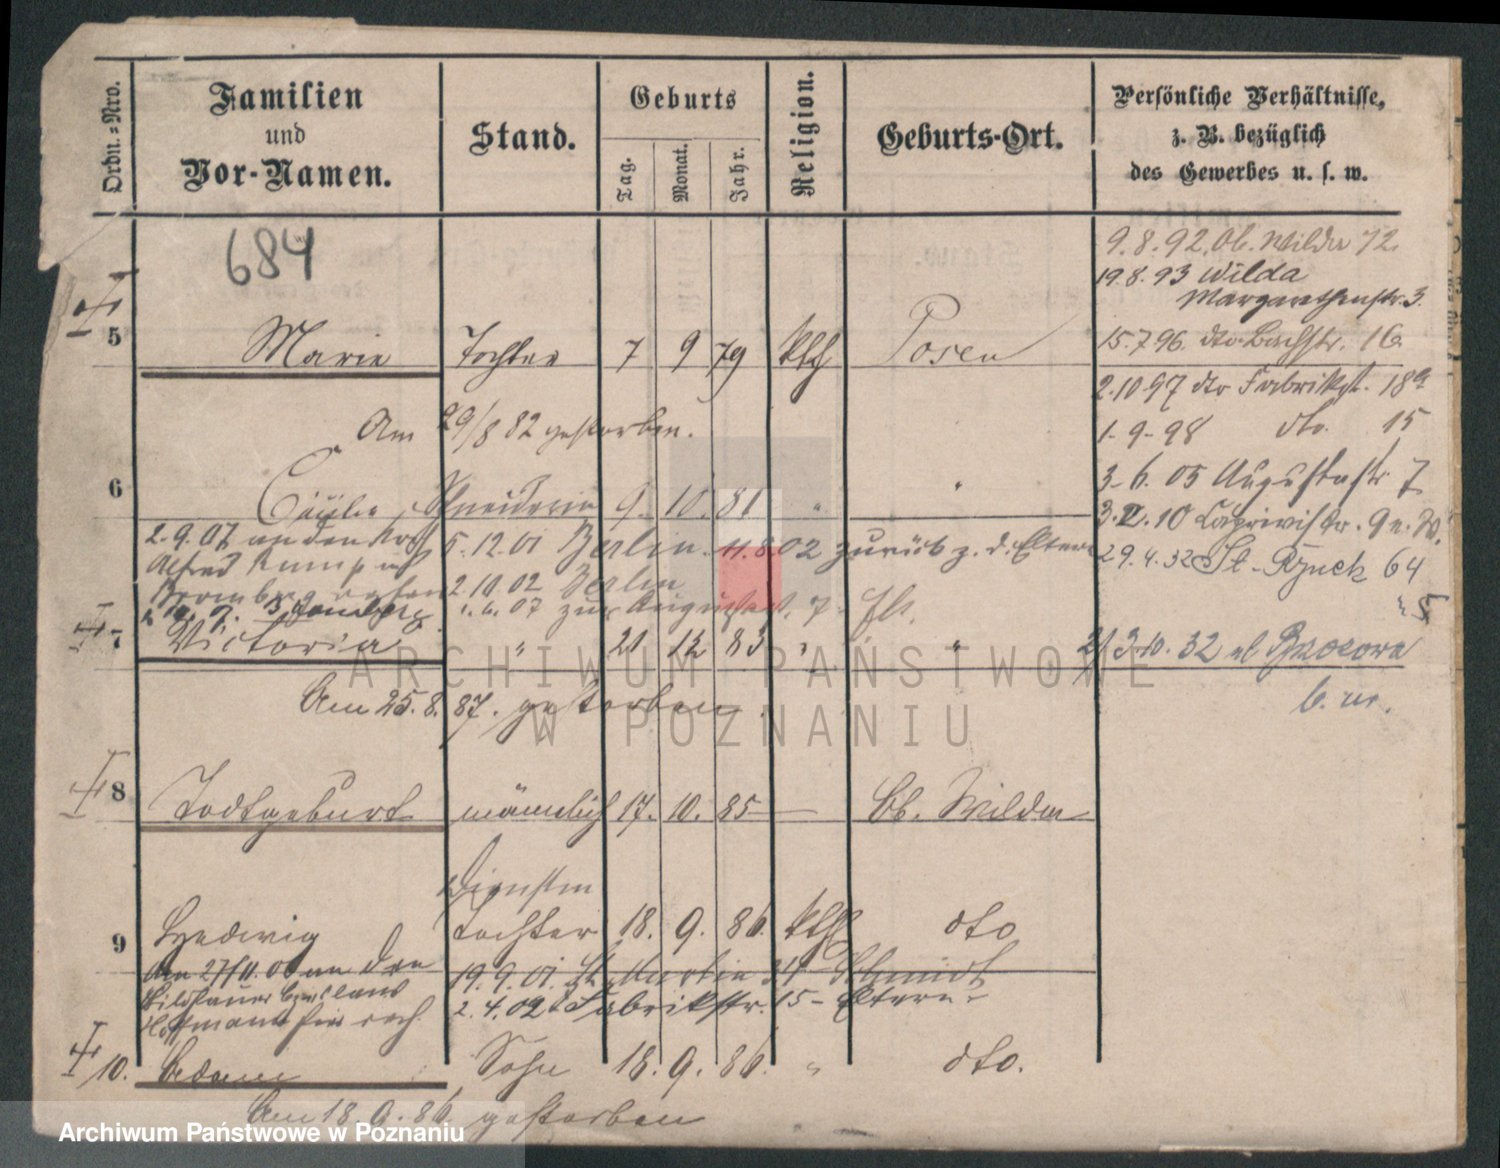 Ordn.=Nro.
Familien
und
Vor-Namen.
Stand.
Geburts
Tag.
Monat.
Jahr.
Religion.
Geburts-Ort.
Persönliche Verhältnisse,
z. B. bezüglich
des Gewerbes u. s. w.
684
9.8.92. Ob. Wilda 72.
19.8.93 Wilda
Margarethenstr. 3.
5 Marie Tochter 7 9 79 kth Posen
15.7.96. dto Bachstr. 16.
2.10 97 dto Fabrikst. 18a
Am 29/8 82 gestorben.
1-9-98 dto. 15
3.6.05 Augustastr 7
6 Cäcilie Schneiderin 9. 10. 81 " "
3.II.10 Caprivistr. 9
2.9.07 an den
5.12.01 Berlin. 11.8.02 zurück z. d. Eltern
29.4.32 St. Rynek 64
Alfred
2.10.02 Berlin
Bromberg
07 zur Augustast. 7
7 Victoria " 21 12 83 " "
3.10.32
Am 25.8.87. gestorben.
8 Todtgeburt männlich 17. 10. 85 — Ob. Wilda
Dienstm
9 Hedwig Tochter 18. 9. 86. kth dto
Am 27/11.06 an den
19.9.01 St. Martin 34 Schmidt
Bildhauer
2.4.02 Fabrikstr. 15 - Eltern
Hoffmann
10. Adam Sohn 18. 9. 86. " dto.
Am 18.9.86. gestorben
ARCHIWUM PAŃSTWOWE
W POZNANIU
Archiwum Państwowe w Poznaniu